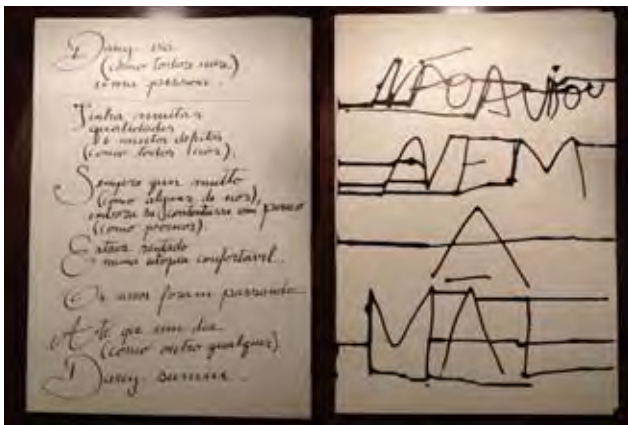 Darcy era
(como todos nós)
uma pessoa.
Tinha muitas
qualidades
e muitos defeitos
(como todos nós).
Sempre quis muito
(como alguns de nós),
embora se contentasse com pouco
(como poucos).
Estava sentado
numa utopia confortável.
Os anos foram passando.
Até que um dia
(como outro qualquer)
Darcy sumiu.
NÃO A
NEM
A
MÃ